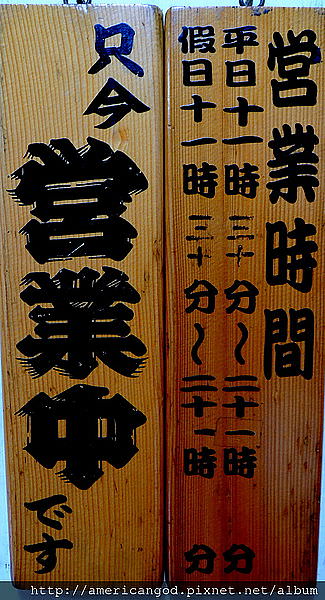 営業時間
平日十一時三十分～二十一時　分
假日十一時三十分～二十一時　分
只今
営業中
です
http://americangod.pixnet.net/album